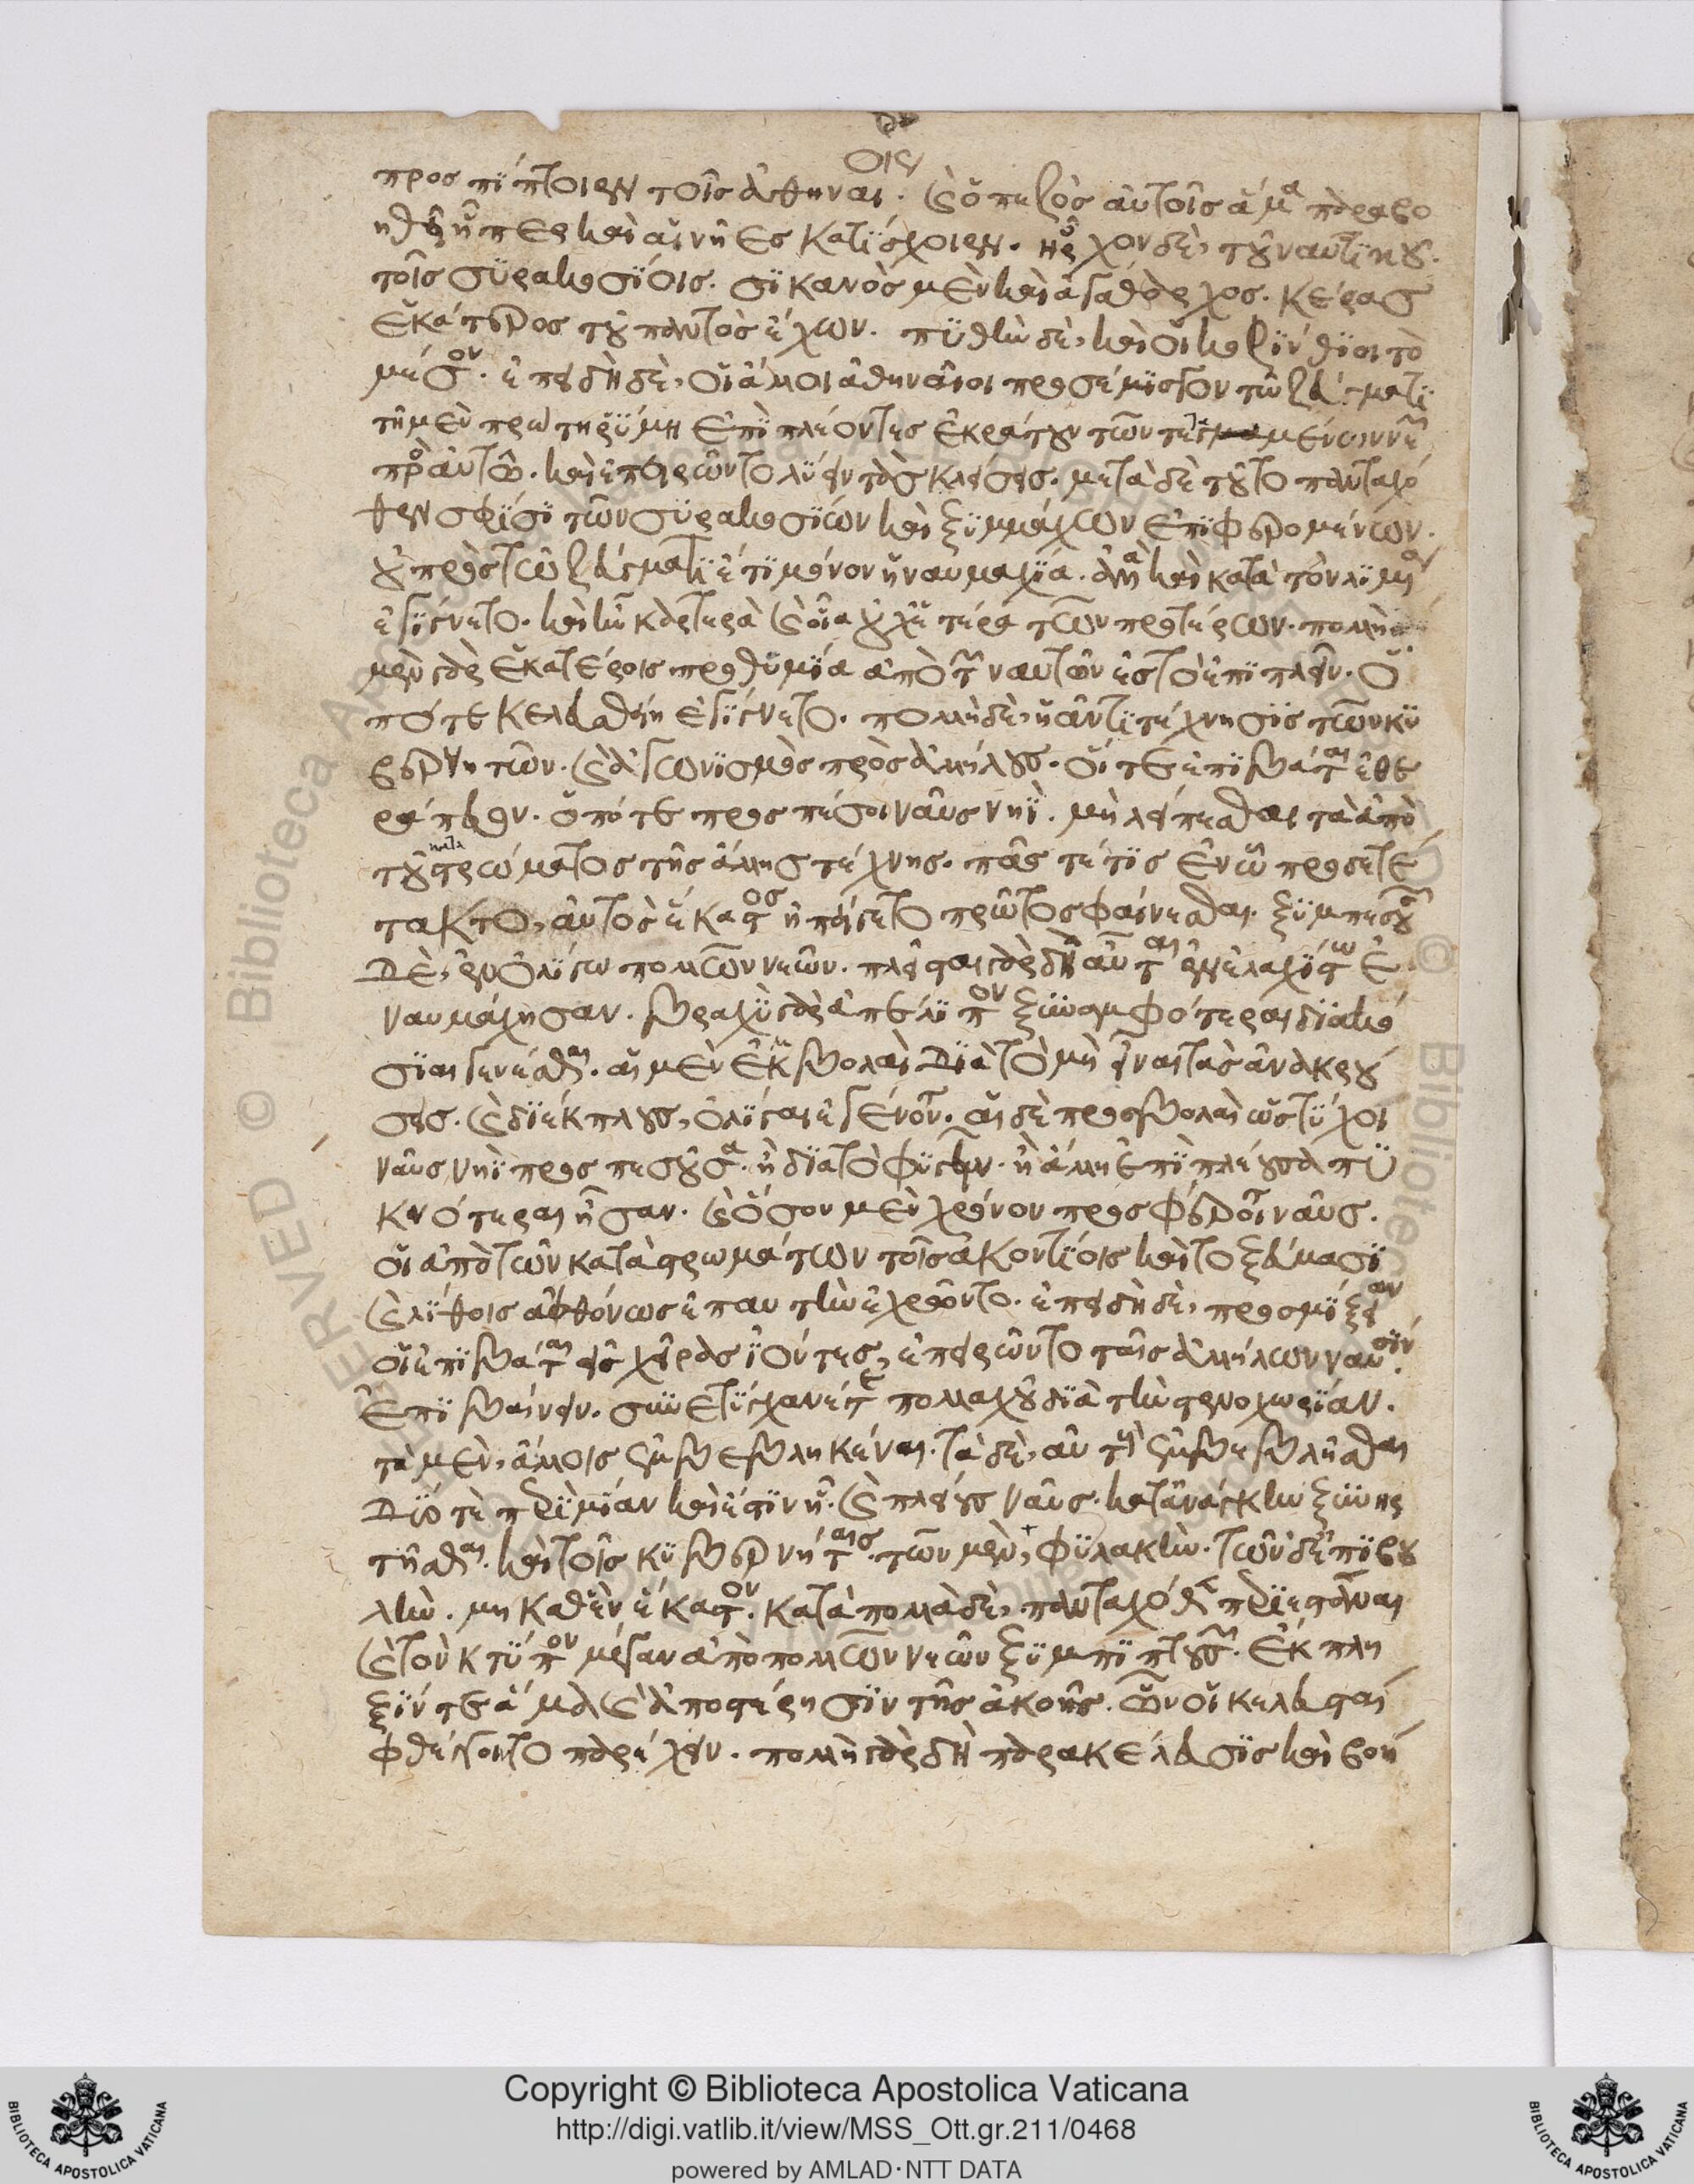 οις
προσπίπτοιεν τοῖς ἀθηναι. καὶ ὁ πεζὸς αὐτοῖς ἅμα παρεβο
ήθει ἧπερ καὶ αἱ νῆες κατίσχοιεν. ἦρχον δὲ, τοῦ ναυτικοῦ.
τοῖς συρακοσίοις. σικανὸς μὲν καὶ ἀγάθαρχος. κέρας
ἑκάτερος τοῦ παντὸς ἔχων. πυθὴν δὲ, καὶ οἱ κορίνθιοι τὸ
μέσον. ἐπειδὴ δὲ, οἱ ἄλλοι ἀθηναῖοι προσέμισγον τῷ ζεύγματι
τῇ μὲν πρώτῃ ῥύμῃ ἐπιπλέοντες ἐκράτουν τῶν τεταγμένων νεῶν
πρὸ αὐτῷ. καὶ ἐπειρῶντο λύειν τὰς κλείσεις. μετὰ δὲ τοῦτο πανταχό
θεν σφίσι τῶν συρακοσίων καὶ ξυμμάχων ἐπιφερομένων.
οὐ πρὸς τῷ ζεύγματι ἔτι μόνον ἡ ναυμαχία. ἀλλὰ καὶ κατὰ τὸν λιμένα
ἐγίγνετο. καὶ ἦν καρτερὰ καὶ οἵα οὐχ ἑτέρα τῶν προτέρων. πολλὴ
μὲν γὰρ ἑκατέροις προθυμία ἀπὸ τῶν ναυτῶν ἐς τὸ ἐπιπλεῖν. ὁ
πότε κελευσθείη ἐγίγνετο. πολλὴ δὲ, ἡ ἀντιτέχνησις τῶν κυ
βερνητῶν. καὶ ἀγωνισμὸς πρὸς ἀλλήλους. οἵ τε ἐπιβάται ἐθε
ράπευον. ὁπότε προσπέσοι ναῦς νηὶ. μὴ λείπεσθαι τὰ ἀπὸ
τοῦ καταστρώματος τῆς ἄλλης τέχνης. πᾶς τέ τις ἐν ᾧ προσετέ
τακτο, αὐτὸς ἕκαστος ἠπείγετο πρῶτος φαίνεσθαι. ξυμπεσουσῶν
δὲ, ἐν ὀλίγῳ πολλῶν νεῶν. πλεῖσται γὰρ δὴ αὗται ἐν ἐλαχίστῳ ἐ
ναυμάχησαν. βραχὺ γὰρ ἀπέλιπον ξυναμφότεραι διακό
σιαι γενέσθαι. αἱ μὲν ἐμβολαὶ διὰ τὸ μὴ εἶναι τὰς ἀνακρού
σεις. καὶ διέκπλους, ὀλίγαι ἐγένοντο. αἱ δὲ προσβολαὶ ὡς τύχοι
ναῦς νηὶ προσπεσοῦσα. ἢ διὰ τὸ φεύγειν. ἢ ἄλλῃ ἐπιπλέουσα πυ
κνότεραι ἦσαν. καὶ ὅσον μὲν χρόνον προσφέροιτο ναῦς.
οἱ ἀπὸ τῶν καταστρωμάτων τοῖς ἀκοντίοις καὶ τοξεύμασι
καὶ λίθοις ἀφθόνως ἐπ αυτὴν ἐχρῶντο. ἐπειδὴ δὲ, προσμίξειαν
οἱ ἐπιβάται εἰς χεῖρας ἰόντες, ἐπειρῶντο ταῖς ἀλλήλων ναυσίν.
ἐπιβαίνειν. συνετύγχανέ τε πολλαχοῦ διὰ τὴν στενοχωρίαν.
τὰ μὲν, ἄλλοις ἐμβεβληκέναι. τὰ δὲ, αὐτοὺς ἐμβεβλῆσθαι
δύο τε περὶ μίαν καὶ ἔστιν ᾗ. καὶ πλείους ναῦς. κατ ἀνάγκην ξυνηρ
τῆσθαι. καὶ τοῖς κυβερνήταις. τῶν μὲν, φυλακὴν. τῶν δ ἐπιβου
λὴν. μὴ καθ ἓν ἕκαστον. κατὰ πολλὰ δὲ, πανταχόθεν περιεστάναι
καὶ τὸν κτύπον μέγαν ἀπὸ πολλῶν νεῶν ξυμπιπτουσῶν. ἔκπλη
ξίν τε ἅμα καὶ ἀποστέρησιν τῆς ἀκοῆς. ὧν οἱ κελευσταὶ
φθέγγοιντο παρέχειν. πολλὴ γὰρ δὴ παρακέλευσις καὶ βοή
Copyright © Biblioteca Apostolica Vaticana
http://digi.vatlib.it/view/MSS_Ott.gr.211/0468
powered by AMLAD·NTT DATA
BIBLIOTECA APOSTOLICA VATICANA
BIBLIOTECA APOSTOLICA VATICANA